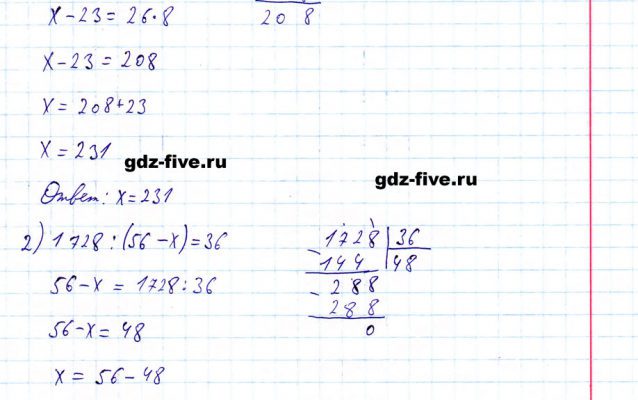 x-23=26·8
20 8
x-23=208
x=208+23
x=231
gdz-five.ru
gdz-five.ru
Ответ: x=231
2) 1728:(56-x)=36
1728 36
144 48
56-x = 1728:36
288
288
56-x=48
0
x = 56-48